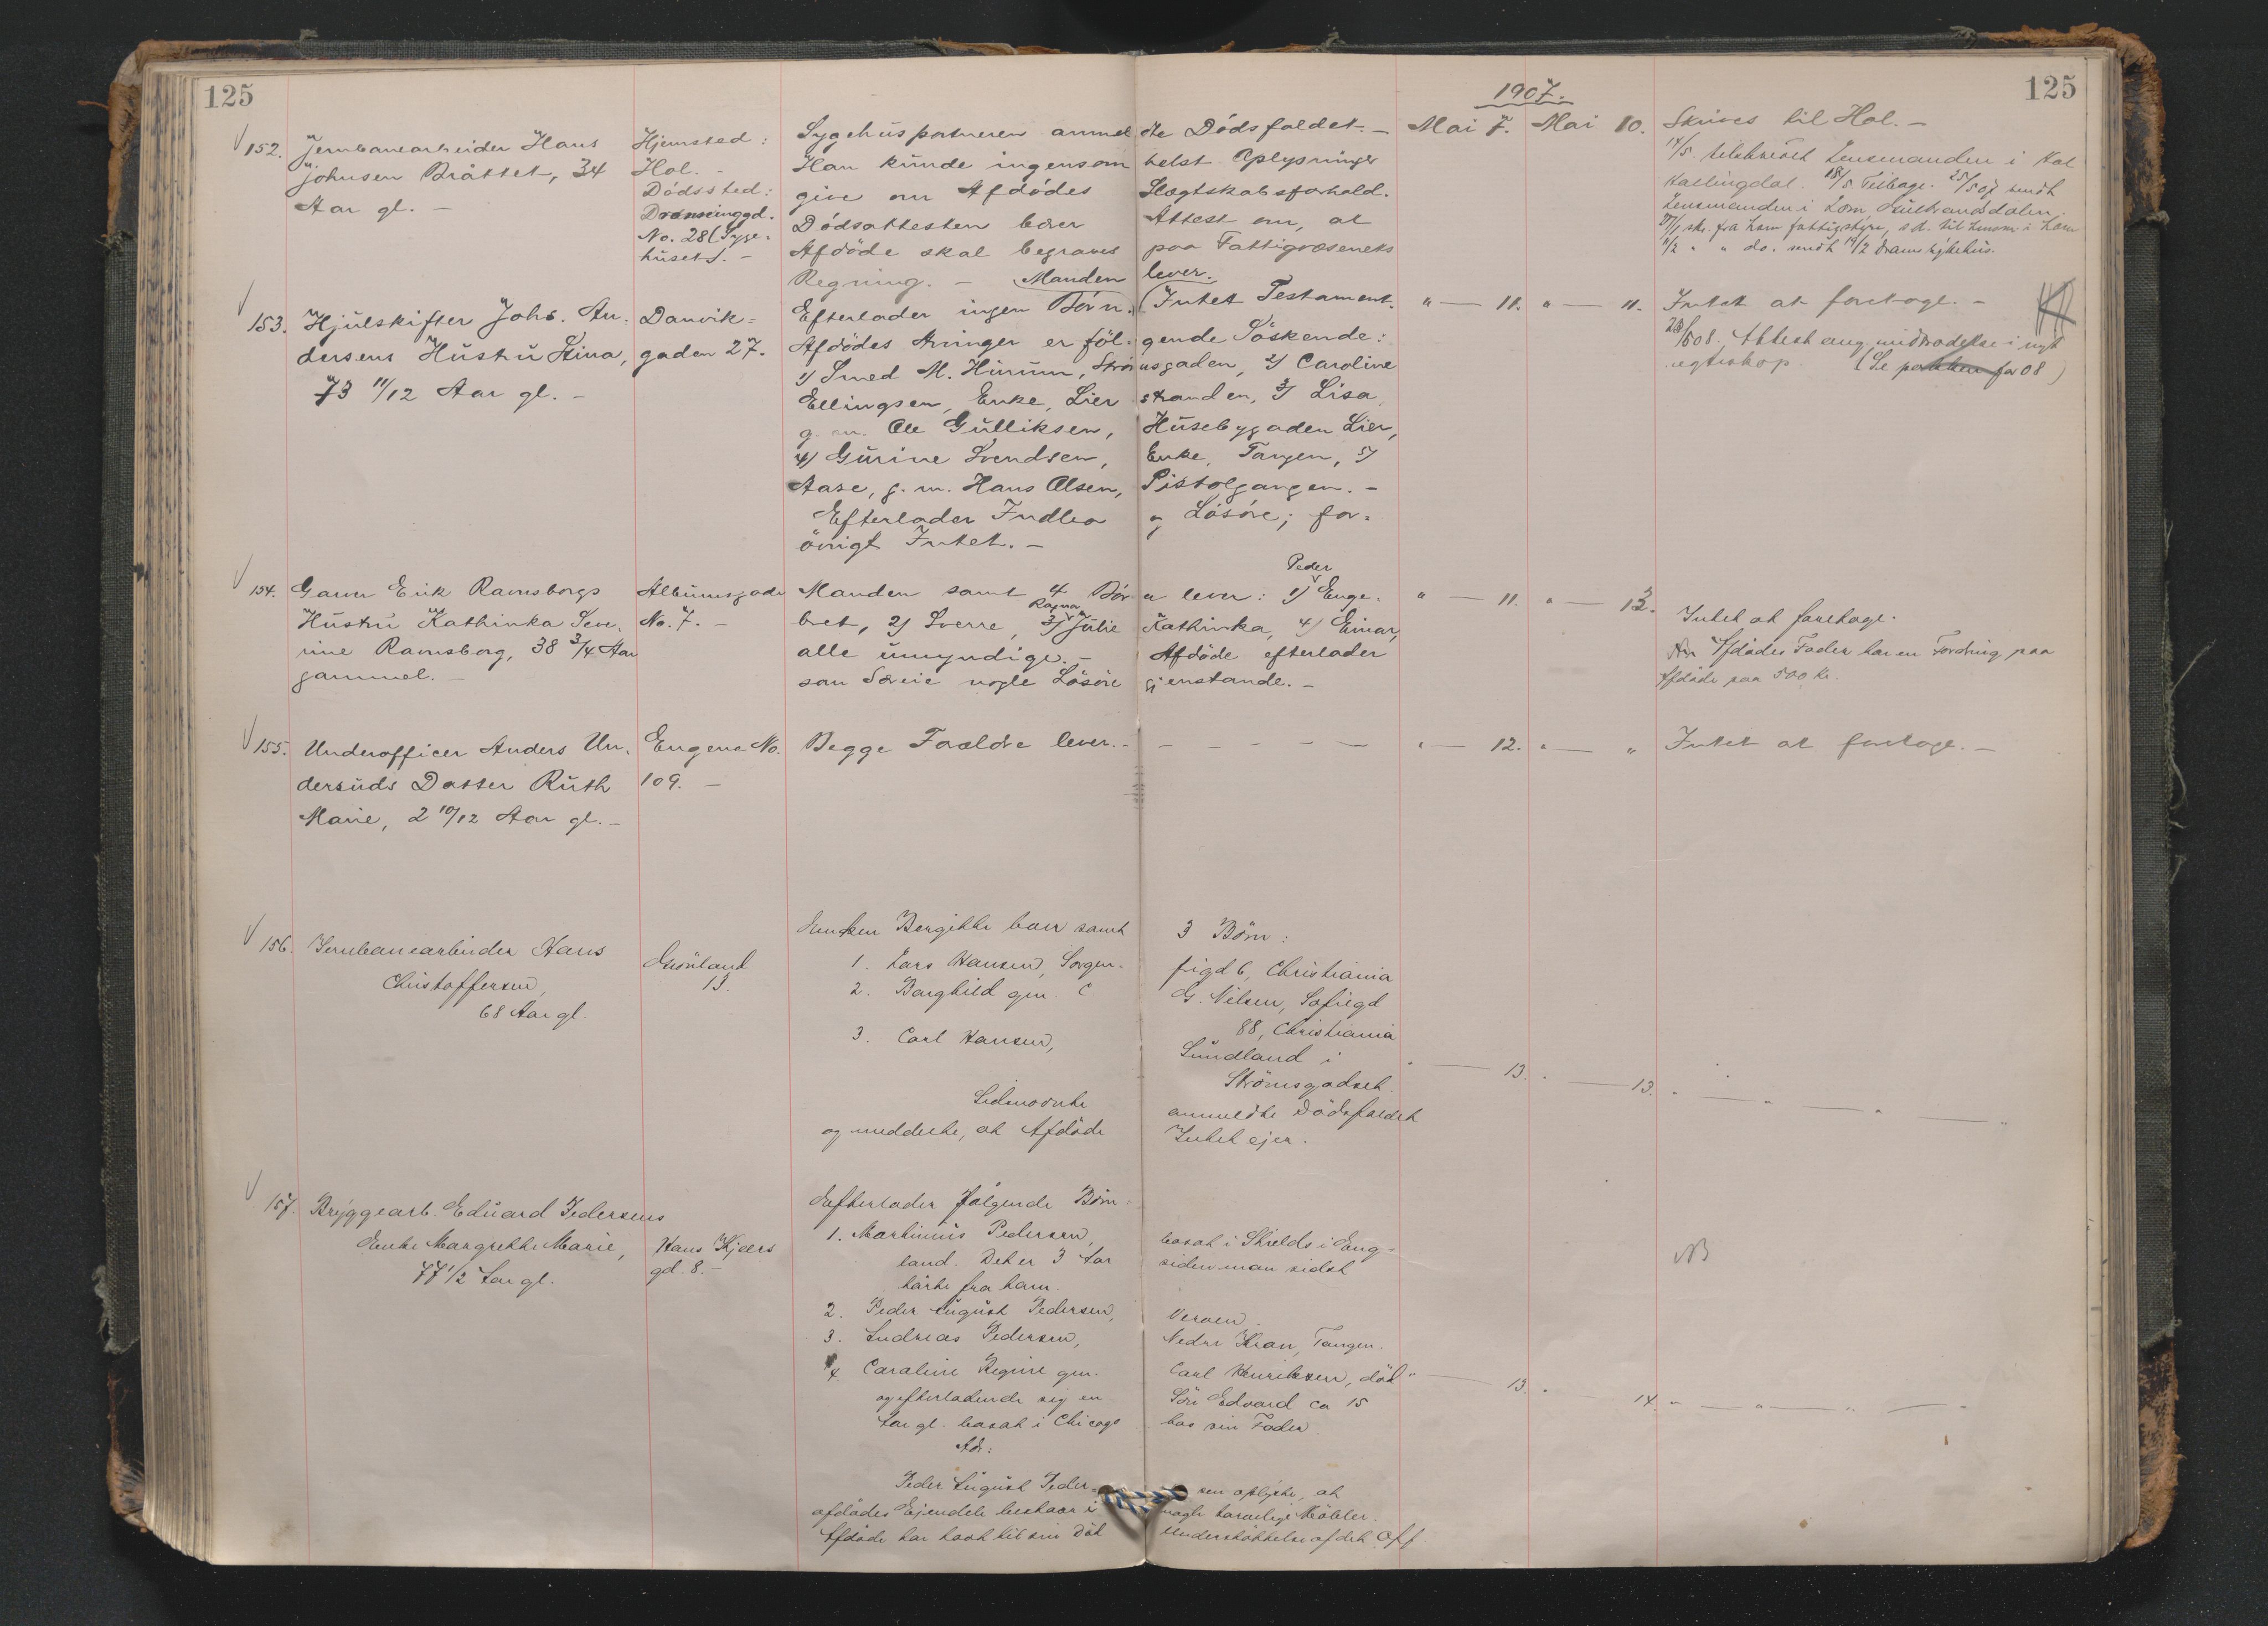 125
125
1907.
152. Jernbanearbeider Hans
Johnsen Bråttet, 34
Aar gl. —
Hjemsted:
Hol. —
Dödssted:
No. 28 (Syge=
huset). —
Sygehusportneren anmeldte Dödsfaldet. —
Han kunde ingensomhelst Oplysninger
give om Afdödes Slægtskabsforhold.
Dödsattesten bærer Attest om, at
Afdöde skal begraves paa Fattigvæsenets
Regning. —
Mai 7. Mai 10.
Skrives til Hol. —
14/5 Lensmanden i Hol
Hallingdal. 18/5 Tilbage. 25/5 07 sendt
Lensmanden i Lom Gulbrandsdalen.
153. Hjulskifter Johs. An=
dersens Hustru Stina,
73 11/12 Aar gl. —
Danvik=
gaden 27.
Manden lever.
Efterlader ingen Börn. (Intet Testament.
Afdödes Arvinger er fölgende Söskende:
1) Smed M. Hurum, 2) Caroline
Ellingsen, Enke, Lierstranden, 3) Lisa,
g. m. Ole Gulliksen, Husebygaden Lier,
4) Gurine Svendsen, Enke, Tangen, 5)
Aase, g. m. Hans Olsen, Pistolgangen. —
Efterlader Indbo og Lösöre; for=
övrigt Intet. —
" — 11. " — 11.
Intet at foretage. —
Attest ang. i nyt
egteskap. (Se pakken for 08)
154. Garver Erik Ramsborgs
Hustru Kathinka Seve=
rine Ramsborg, 38 3/4 Aar
gammel. —
Albumsgade
No. 7. —
Peder
Manden samt 4 Börn lever: 1) Enge=
Ragna
bret, 2) Sverre, 3) Julie Kathinka, 4) Einar,
alle umyndige. — Afdöde efterlader
som Særeie nogle Lösöregjenstande. —
" — 11. " — 13.
Intet at foretage.
Afdödes Fader har en Fordring paa
Afdöde paa 500 Kr.
155. Underofficer Anders Un=
dersuds Datter Ruth
Marie, 2 10/12 Aar gl. —
Eugene No.
109. —
Begge Forældre lever. — — — — — —
" — 12. " — "
Intet at foretage. —
156. Jernbanearbeider Hans
Christoffersen,
68 Aar gl.
Grönland
13.
Enken Bergitte lever samt 3 Börn:
1. Lars Hansen, Sorgenfrigd 6, Christiania
2. Borghild gm. C G. Nilsen, Sofiegd
88, Christiania
3. Carl Hansen, Sundland i
Strömsgodset.
Sidnævnte anmeldte Dödsfaldet
og meddelte, at Afdöde Intet ejer.
" — 13. " — 13. " — " — " — "
157. Bryggearb. Eduard Pedersens
Enke Margrethe Marie,
77 1/2 Aar gl.
Hans Kjærs
gd. 8. —
Eefterlader fölgende Börn:
1. Martinius Pedersen, bosat i Shields i Eng=
land. Det er 3 Aar siden man sidst
hörte fra ham.
2. Peder August Pedersen, Verven.
3. Andreas Pedersen, Nedre Kran, Tangen.
4. Caroline Regine gm. Carl Henriksen, död
og efterladende sig en Sön Edvard ca 15
Aar gl. bosat i Chicago hos sin Fader.
Adr:
Peder August Pedersen oplyste, at
afdödes Ejendele bestaar i nogle tarvelige Möbler.
Afdöde har havt til sin Död Understöttelse af det Off.
" — 13. " — 14. " — " — " —
NB